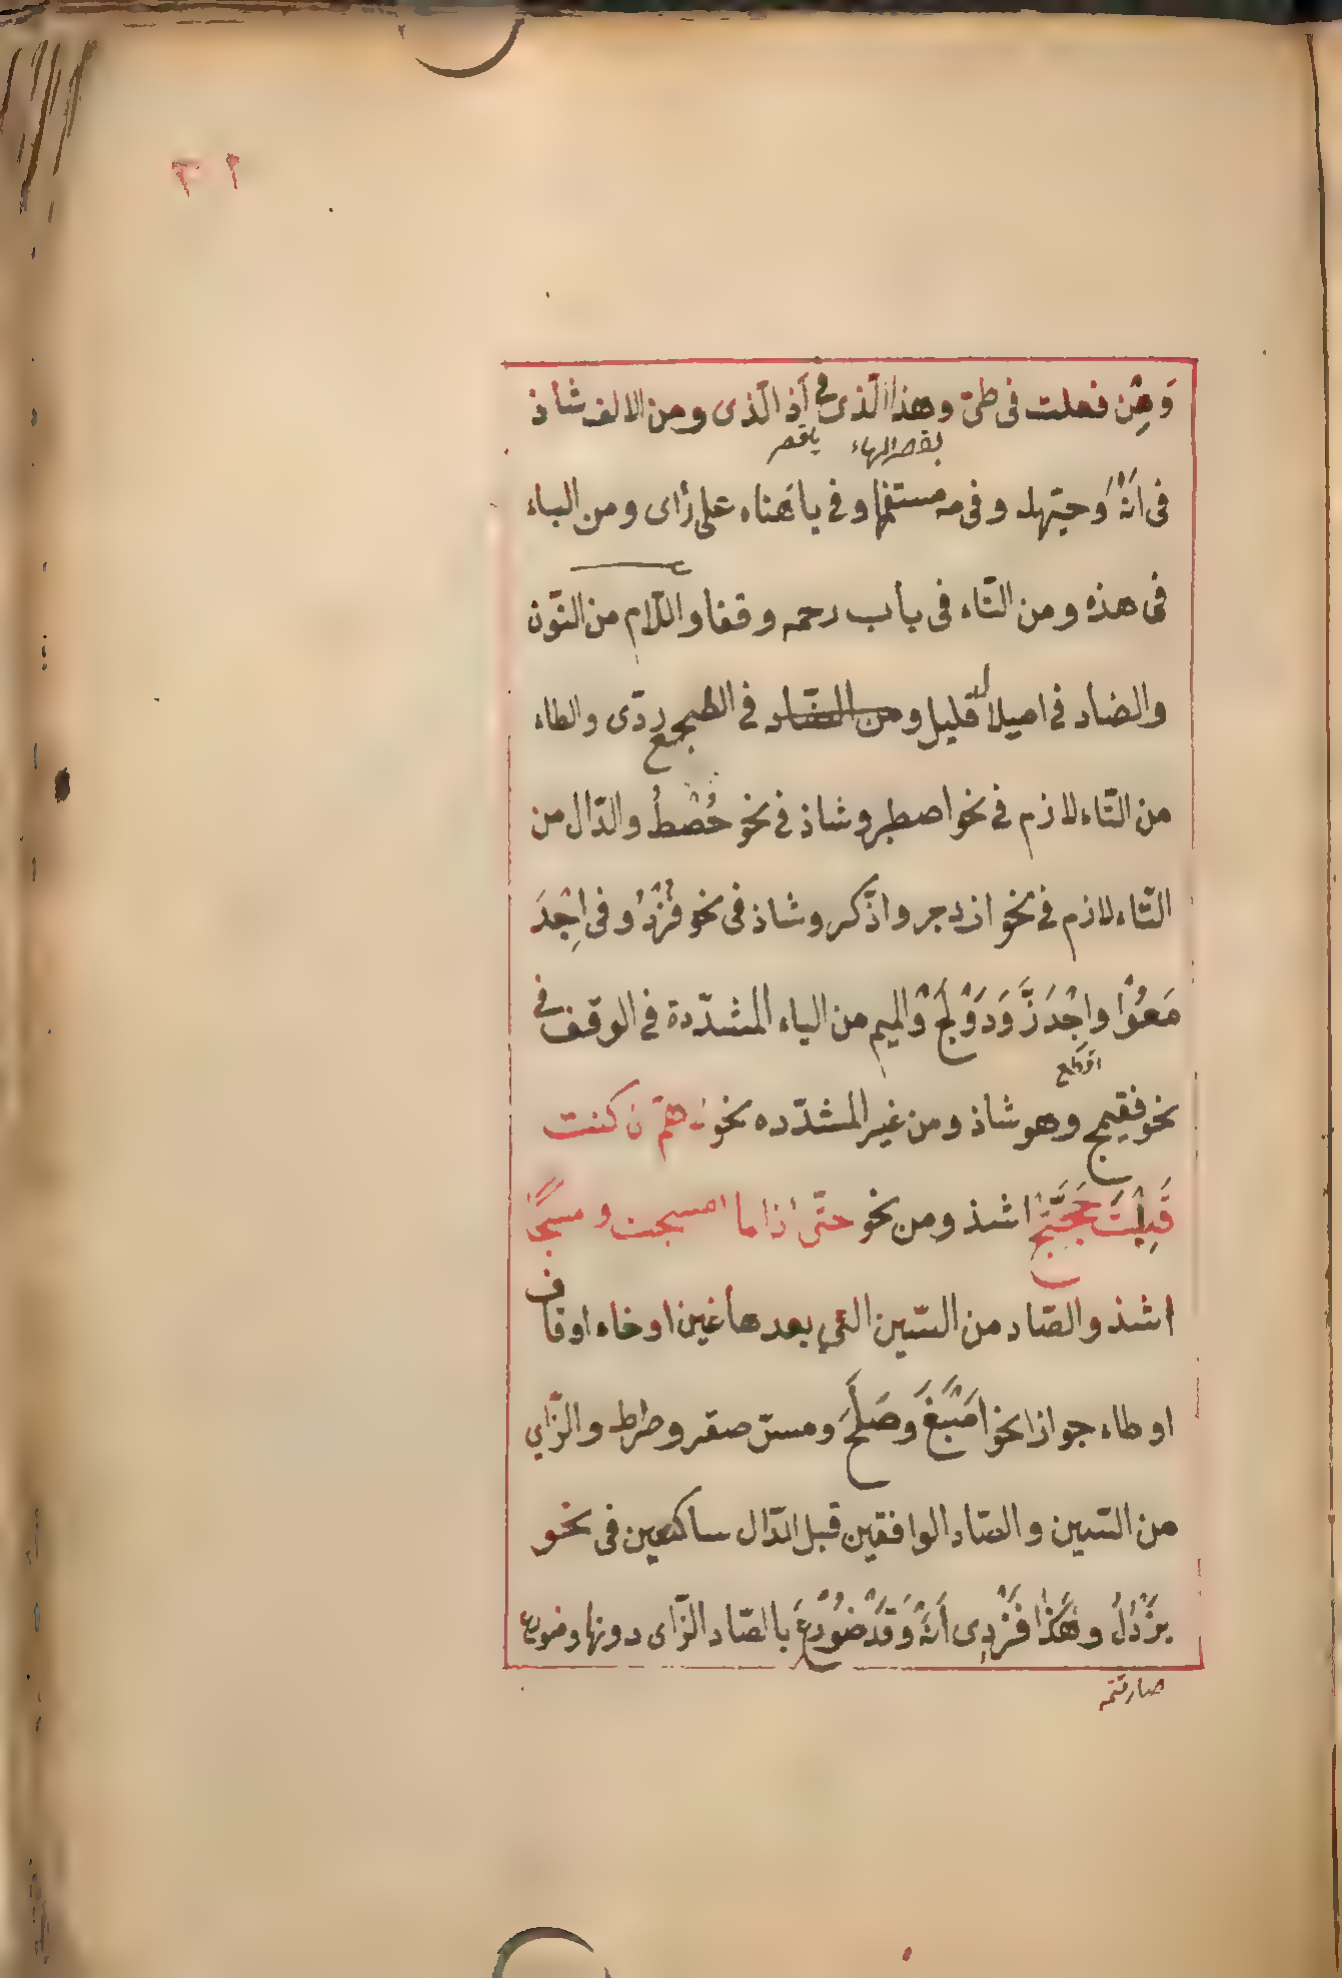 ٢١
وَهِنْ فعلت فى طىّ وهذا الّذى فى أذ الّذى ومن الالف شاذ
بقصر الهاء
فى انَهْ وَحيّهله وفى مه مستفهما وفى يا هَناه على رَاى ومن الياء
فى هذه ومن التّاء فى باب رحمه وقفا واللّام من النّون
والضاد فى اصيلال قليل و فى الطجع ردّى والطاء
من التّاء لازم فى نحو اصطبر وشاذ فى نحو حُصْطُ والدّال من
التّاء لازم فى نحو ازدجر واذّكر وشاذ فى نحو فُزْدُ وفى اِجْدَ
مَعُوْا واجْدَزَّ وَدَوْلَجْ والميم من الياء المشدّدة فى الوقف فى
نحو فقيمج وهو شاذ ومن غير المشدّده نحو لاهمّ ان كنت
قَبِلْتَ حَجَّتِجْ اشذ ومن نحو حتّى اذا ما امسجت و مسجًا
اشذ والصّاد من السّين الّتي بعدها غين او خاء او قاف
او طاء جوازا نحو اَصْبَغَ وَصَلَخَ ومسّ صقر وصراط والزّاي
من السّين والصّاد الواقعتين قبل الدّال ساكنتين فى نحو
يَزْدُلُ وهٰكَذا فَزْدِى اَنَهْ وَقَدْ ضُوْرِعَ بالصّاد الزّاى دونها وضورع